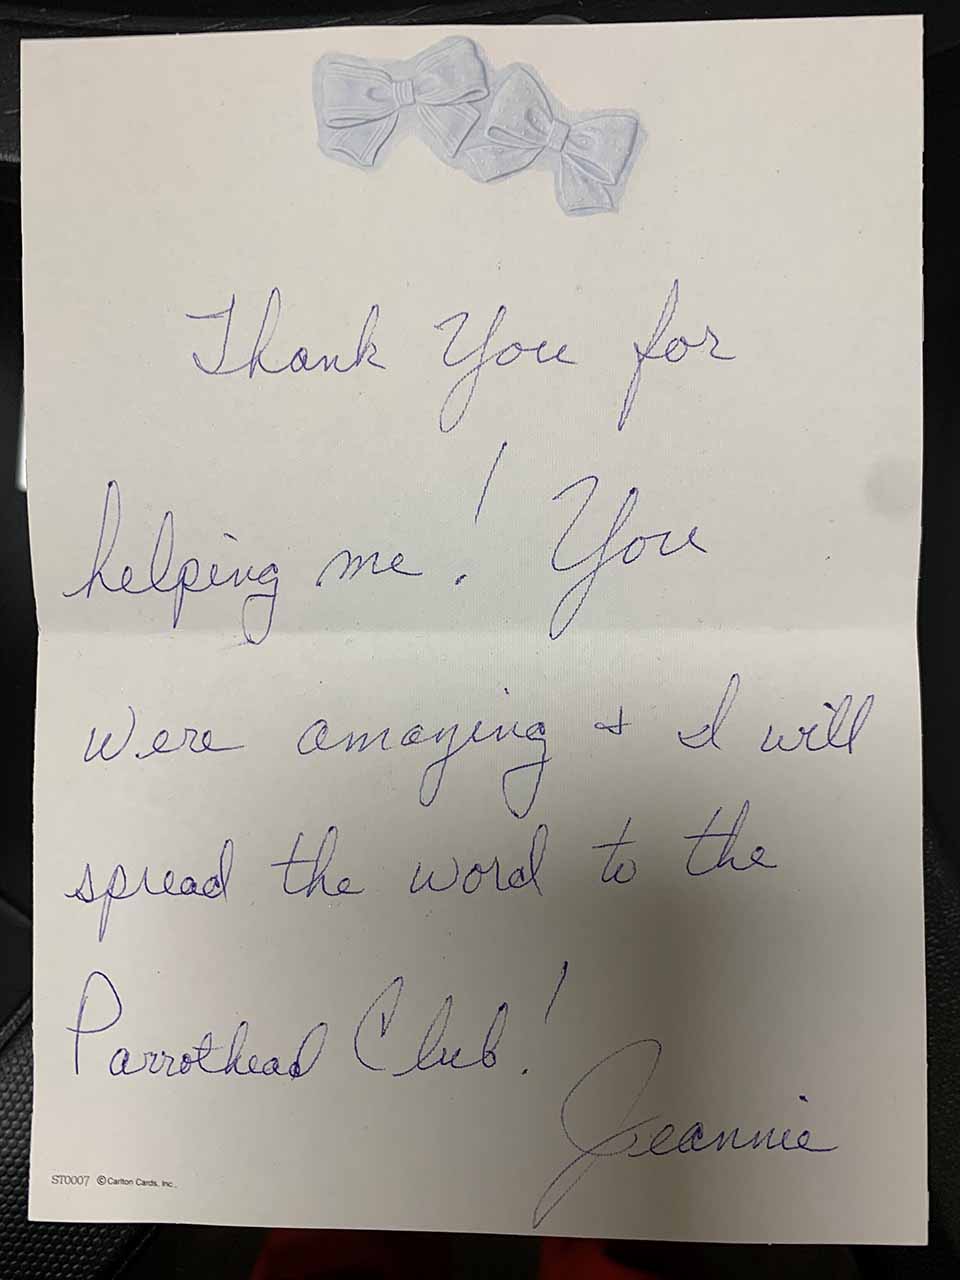 Thank You for
helping me! You
were amazing + I will
spread the word to the
Parrothead Club!
Jeannie
ST0007 ©Carlton Cards, Inc.